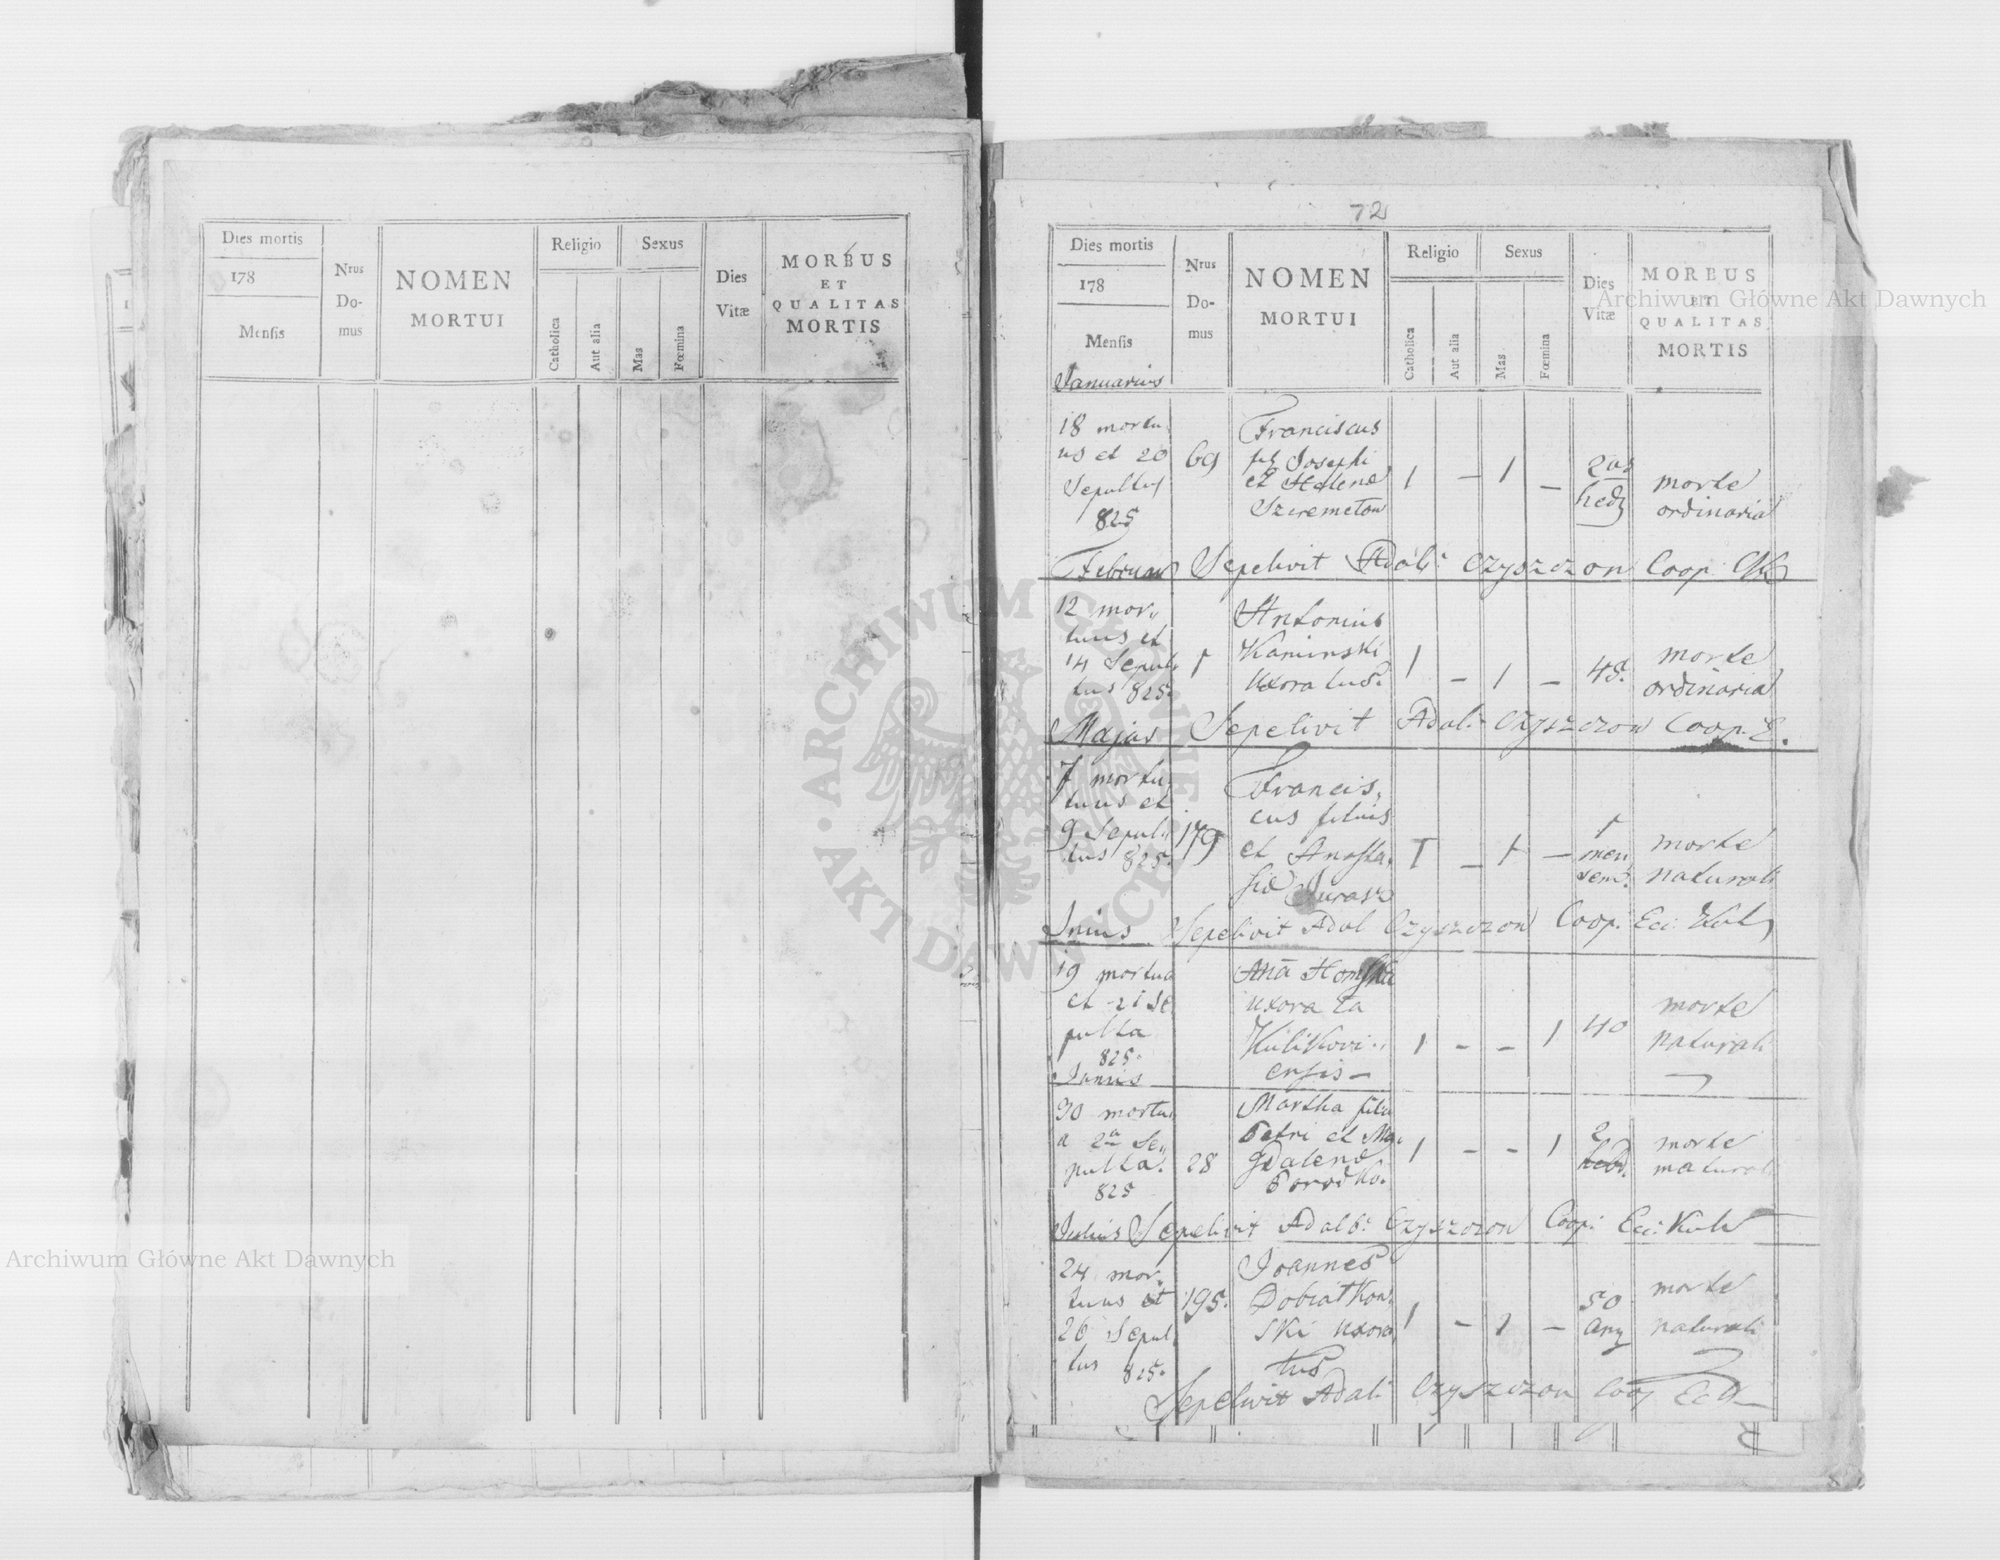 Dies mortis
178
Mensis
Nrus
Do-
mus
NOMEN
MORTUI
Religio
Catholica
Aut alia
Sexus
Mas
Fœmina
Dies
Vitæ
MORBUS
ET
QUALITAS
MORTIS
72
Dies mortis
178
Mensis
Nrus
Do-
mus
NOMEN
MORTUI
Religio
Catholica
Aut alia
Sexus
Mas
Fœmina
Dies
Vitæ
MORBUS
ET
QUALITAS
MORTIS
Januarius
18 mortu
us et 20
Sepultus
825
69
Franciscus
fil Josephi
et Helena
Szeremeton
1 - 1 -
morte
ordinaria
Februar Sepelivit Adal: Czyszczon Coop
12 mor
tuus et
14 Sepul
tus 825.
Antonius
Kaminski
Uxoratus
1 - 1 - 48.
morte
ordinaria
Majus Sepelivit Adal: Czyszczon Coop. E.
7 mortu
tuus et
9 Sepul
tus 825.
179
Francis
cus filius
et Anasta
sia Juraw
1 - 1 -
1
men
sem.
morte
naturali
Junius Sepelivit Adal Czyszczon Coop. Ecc: Kul
19 mortua
et 21 Se
pulta
825.
Anā
Uxora ta
Kulikovi
ensis -
1 - - 1 40
morte
naturali
Junius
30 mortu
a 2a Se
pulta.
825
28
Martha filia
Petri et Ma
gdalena
Porodko.
1 - - 1
2
hebd.
morte
natural
Julius Sepelivit Adalb: Czyszczon Coop: Ecc: Kul
24 mor
tuus et
26 Sepul
tus 825.
195.
Joannes
Dobiatkow
ski Uxora
tus
1 - 1 -
50
any
morte
naturali
Sepelivit Adal: Czyszczon Coop Ec
Archiwum Główne Akt Dawnych
Archiwum Główne Akt Dawnych
ARCHIWUM GŁÓWNE
AKT DAWNYCH